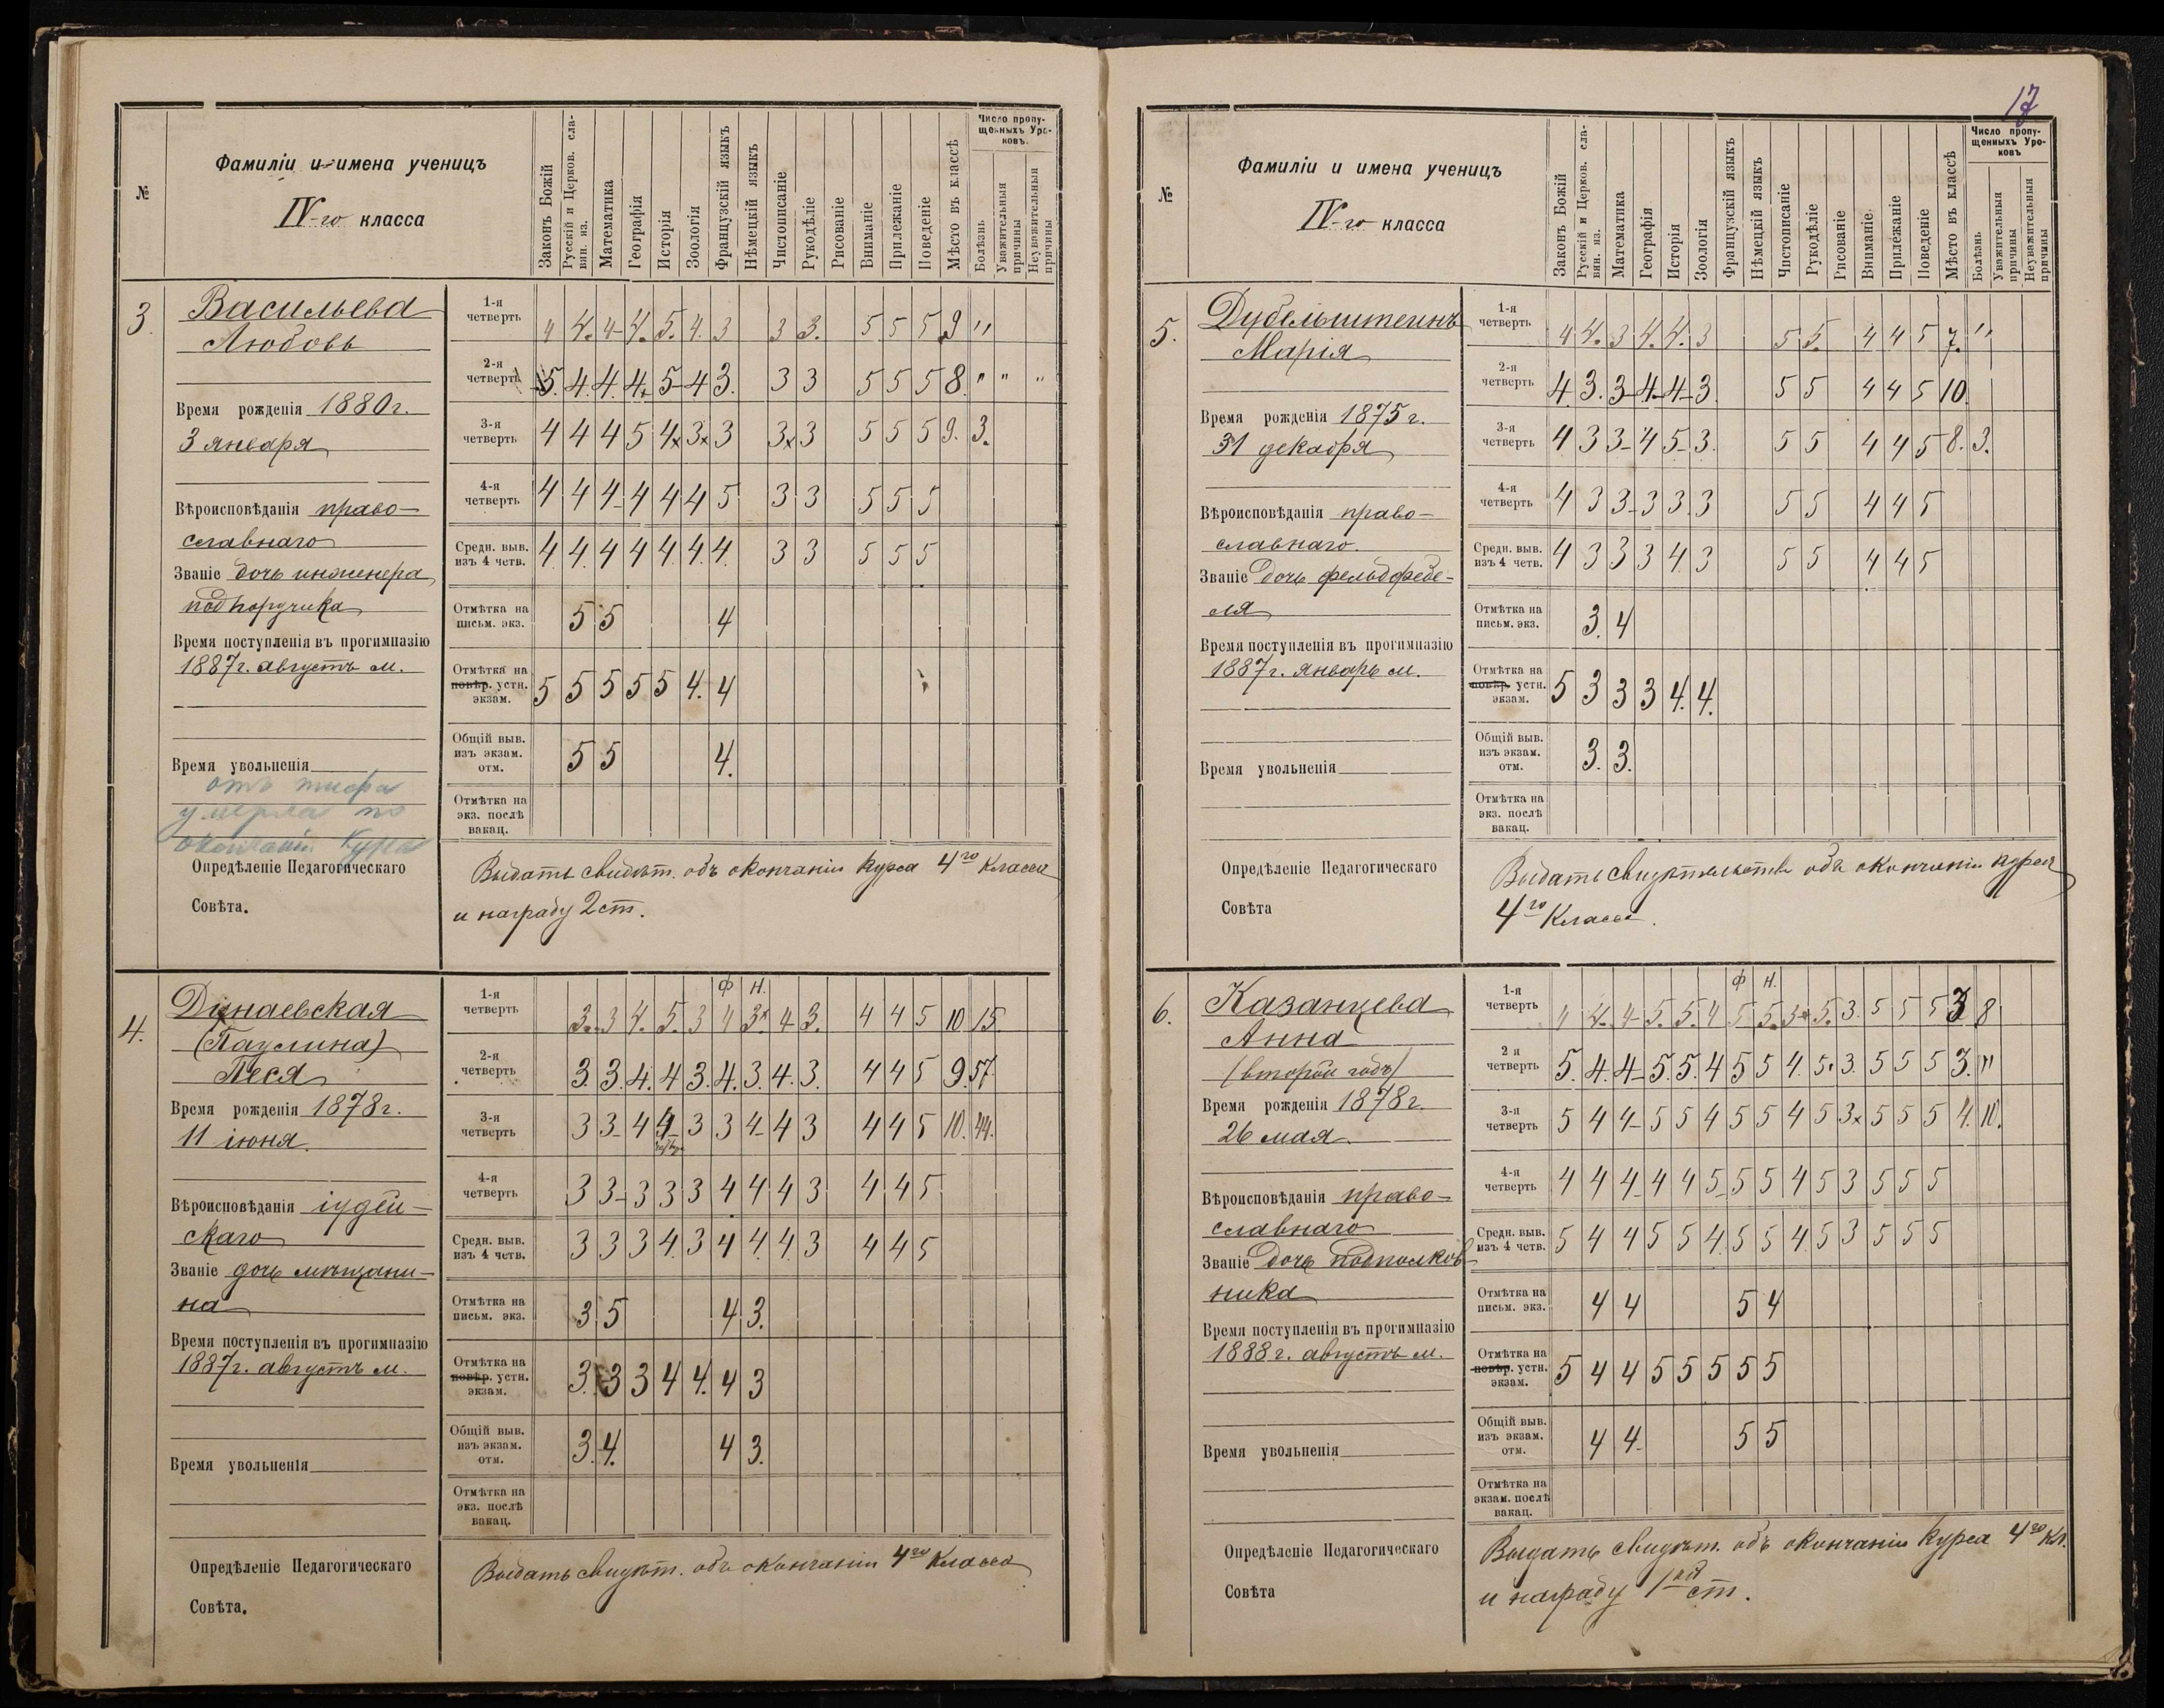 №
Фамиліи и имена ученицъ
IV-го класса
Законъ Божій
Русскій и Церков. сла-
вян. яз.
Математика
Географія
Исторія
Зоологія
Французскій языкъ
Нѣмецкій языкъ
Чистописаніе
Рукодѣліе
Рисованіе
Вниманіе
Прилежаніе
Поведеніе
Мѣсто въ классѣ
Число пропу-
щенныхъ Уро-
ковъ.
Болѣзнь
Уважительныя
причины
Неуважительныя
причины
3.
Васильева
Любовь
Время рожденія 1880 г.
3 января
Вѣроисповѣданія право-
славнаго
Званіе дочь инженера
подпоручика
Время поступленія въ прогимназію
1887 г. августъ м.
Время увольненія
отъ тифа
умерла по
окончаніи курса
1-я четверть 4 4. 4 4. 5. 4. 3 3 3. 5 5 5 9 "
2-я четверть 5. 4. 4. 4. 5 4 3. 3 3 5 5 5 8. " " "
3-я четверть 4 4 4 5 4х 3х 3 3х 3 5 5 5 9. 3.
4-я четверть 4 4 4 4 4 4 5 3 3 5 5 5
Средн. выв. изъ 4 четв. 4 4. 4 4 4. 4. 4. 3 3 5 5 5
Отмѣтка на письм. экз. 5 5 4
Отмѣтка на повѣр. устн. экзам. 5 5 5 5 5 4. 4
Общій выв. изъ экзам. отм. 5 5 4.
Отмѣтка на экз. послѣ вакац.
Опредѣленіе Педагогическаго
Совѣта.
Выдать свидѣт. объ окончаніи курса 4го класса
и награду 2 ст.
4.
Дунаевская
(Паулина)
Песя
Время рожденія 1878 г.
11 іюня.
Вѣроисповѣданія іудей-
скаго
Званіе дочь мѣщани-
на
Время поступленія въ прогимназію
1887 г. августъ м.
Время увольненія
Ф Н.
1-я четверть 3. 3 4. 5. 3 4 3х 4 3. 4 4 5 10 15
2-я четверть 3. 3. 4. 4 3. 4. 3. 4. 3. 4 4 5 9. 57
3-я четверть 3 3 4 4 3 3 4 4 3 4 4 5 10. 44.
4-я четверть 3 3 3 3 3 4 4 4 3 4 4 5
Средн. выв. изъ 4 четв. 3 3 3 4. 3 4 4. 4. 3 4 4 5
Отмѣтка на письм. экз. 3 5 4 3.
Отмѣтка на повѣр. устн. экзам. 3. 3 3 4 4. 4 3
Общій выв. изъ экзам. отм. 3. 4. 4 3.
Отмѣтка на экз. послѣ вакац.
Опредѣленіе Педагогическаго
Совѣта.
Выдать свидѣт. объ окончаніи 4го класса
17
№
Фамиліи и имена ученицъ
IV-го класса
Законъ Божій
Русскій и Церков. сла-
вян. яз.
Математика
Географія
Исторія
Зоологія
Французскій языкъ
Нѣмецкій языкъ
Чистописаніе
Рукодѣліе
Рисованіе
Вниманіе
Прилежаніе
Поведеніе
Мѣсто въ классѣ
Число пропу-
щенныхъ Уро-
ковъ
Болѣзнь
Уважительныя
причины
Неуважительныя
причины
5.
Дубельштейнъ
Марія
Время рожденія 1875 г.
31 декабря
Вѣроисповѣданія право-
славнаго.
Званіе дочь фельдфебе-
ля
Время поступленія въ прогимназію
1887 г. январь м.
Время увольненія
1-я четверть 4 4. 3 4. 4. 3 5 5. 4 4 5 7. "
2-я четверть 4. 3. 3 4 4 3 5 5 4 4 5 10.
3-я четверть 4 3 3 4 5 3. 5 5 4 4 5 8. 3.
4-я четверть 4 3 3 3 3. 3 5 5 4 4 5
Средн. выв. изъ 4 четв. 4 3 3 3 4. 3 5 5 4 4 5
Отмѣтка на письм. экз. 3. 4
Отмѣтка на повѣр. устн. экзам. 5 3 3 3 4. 4.
Общій выв. изъ экзам. отм. 3. 3.
Отмѣтка на экз. послѣ вакац.
Опредѣленіе Педагогическаго
Совѣта
Выдать свидѣтельство объ окончаніи курса
4го класса.
6.
Казанцева
Анна
(второй годъ)
Время рожденія 1878 г.
26 мая
Вѣроисповѣданія право-
славнаго
Званіе дочь подполков-
ника
Время поступленія въ прогимназію
1888 г. августъ м.
Время увольненія
Ф Н.
1-я четверть 4 4. 4 5. 5. 4 5 5. 3х 5. 3. 5 5 5 3 8
2 я четверть 5. 4. 4 5. 5. 4 5 5 4. 5. 3. 5 5 5 3. "
3-я четверть 5 4 4 5 5 4 5 5 4 5 3х 5 5 5 4. 10.
4-я четверть 4 4 4 4 4 5 5 5 4 5 3 5 5 5
Средн. выв. изъ 4 четв. 5 4 4 5 5 4. 5 5 4. 5 3 5 5 5
Отмѣтка на письм. экз. 4 4 5 4
Отмѣтка на повѣр. устн. экзам. 5 4 4 5 5 5 5 5
Общій выв. изъ экзам. отм. 4 4 5 5
Отмѣтка на экзам. послѣ вакац.
Опредѣленіе Педагогическаго
Совѣта
Выдать свидѣт. объ окончаніи курса 4го кл.
и награду 1ой ст.